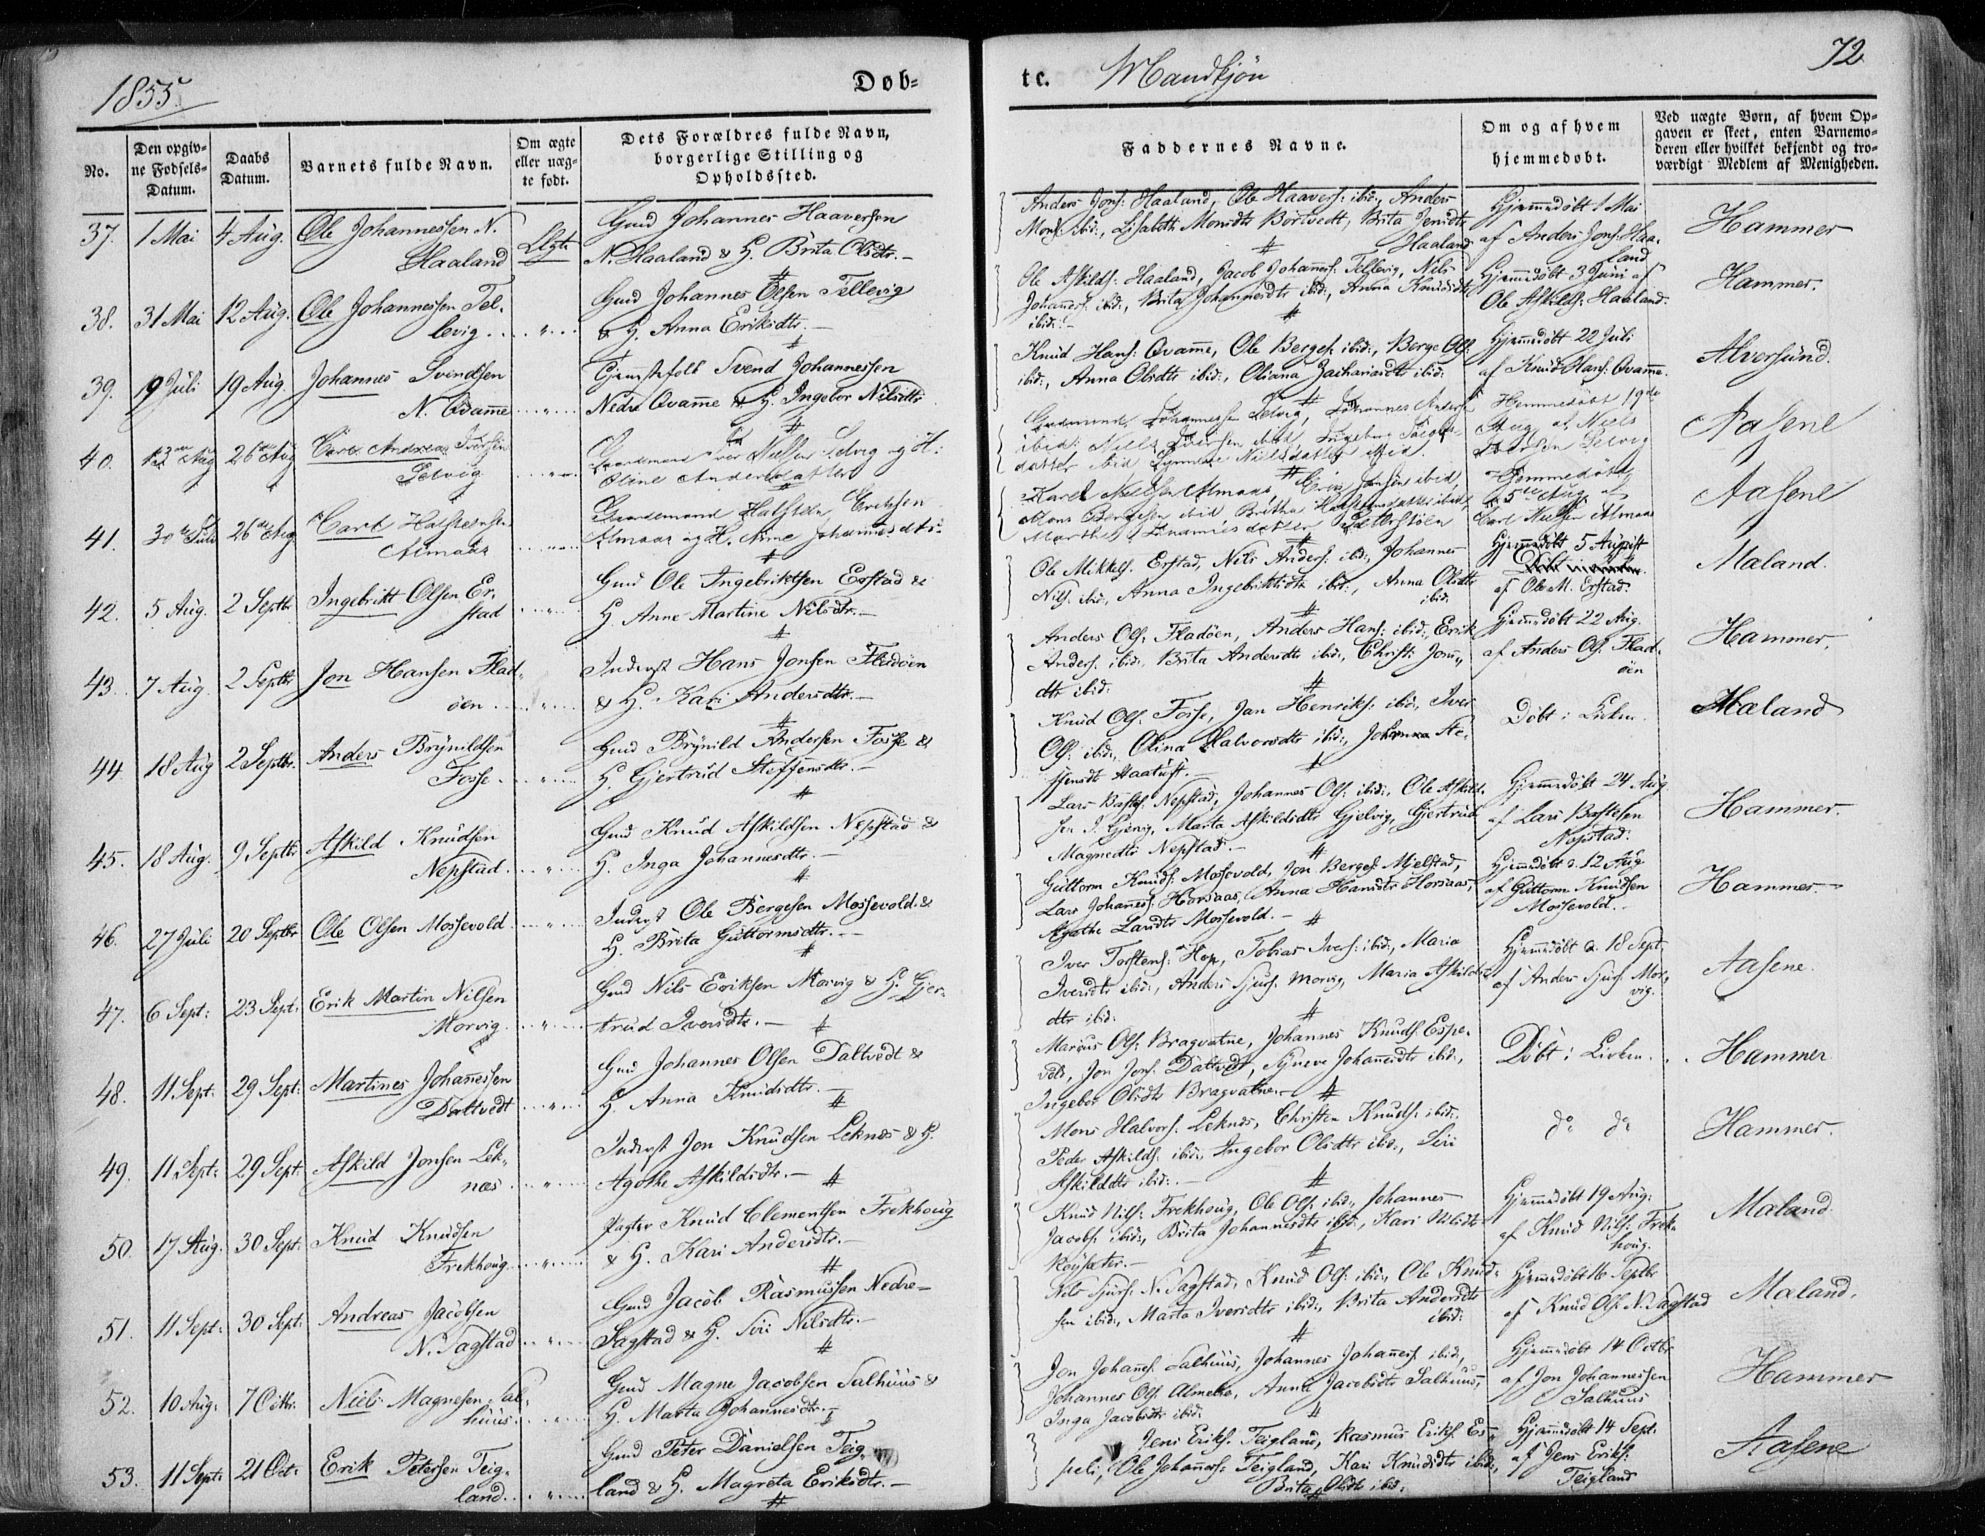 1855.
Døb-
te. Mandkjön
72
No.
Den opgiv-
ne Fødsels-
Datum.
Daabs
Datum.
Barnets fulde Navn.
Om ægte
eller uæg-
te født.
Dets Forældres fulde Navn,
borgerlige Stilling og
Opholdssted.
Faddernes Navne.
Om og af hvem
hjemmedøbt.
Ved uægte Børn, af hvem Op-
gaven er skeet, enten Barnemo-
deren eller hvilket bekjendt og tro-
værdigt Medlem af Menigheden.
37. 1 Mai 4 Aug. Ole Johannessen N.
Haaland
Ægte
Gmd Johannes Haaversen
N. Haaland & H. Brita Olsdtr. -
Anders Jons: Haaland, Ole Haavers: ibid:, Anders
Mons: ibid:, Lisabeth Monsdtr Bortvedt, Brita Jensdtr
Haaland
Hjemmedöbt 1 Mai
af Anders Jons: Haa-
land
Hammer
38. 31 Mai 12 Aug. Ole Johannessen Tel-
levig
Gmd Johannes Olsen Tellevig
& H. Anna Eriksdtr. -
Ole Askilds: Haaland, Jacob Johanes: Tellevig, Nils
Johanes: ibid:, Brita Johannesdtr ibid:, Anna Knudsdtr
ibid: -
Hjemmedöbt 3 Juni af
Ole Askilds: Haaland.
Hammer.
39. 9 Juli 19 Aug. Johannes Svendsen
N. Qvamme
Svend Johannessen
Nedre Qvamme & H. Ingebor Nilsdtr
Knud Hans: Qvamme, Ole Berges: ibid:, Berge Ols:
ibid:, Anna Olsdtr ibid:, Oliana Zachariasdtr ibid:
Hjemmedöbt 22 Juli
af Knud Hans: Qvamme.
Alversund.
40. 26 Aug Carl Andreas Iversen
Selvig
Gaardmand Iver Nielsen Selvig og H:
Oline Andersdatter
Gaardmand Johannessen Selvig, Johannes Anders
ibid: Niels Iversen ibid, Ingeborg
datter ibid Nielsdatter ibid.
Hjemmedöbt 19de
Aug af Niels
Iversen Selvig
Aasene
41. 30 Juli 26 Aug Carl Halsteinsen
Almaas
Gaardmand Halstein Eriksen
Almaas og H. Anne Johannesdtr:
Karl Nielsen Almaas ibid,
Mons Borgesen ibid Britha Halsteinsdatter ibid,
Marthe datter
Hjemmedöbt
5te Aug af
Carl Nielsen Almaas
Aasene
42. 5 Aug. 2 Septbr Ingebritt Olsen Er-
stad
Gmd Ole Ingebriktsen Erstad &
H. Anne Martine Nilsdtr. -
Ole Mikkels: Erstad, Nils Anders: ibid:, Johannes
Nils: ibid:, Anna Ingebriktsdtr ibid:, Anna Olsdtr
ibid:
Hjemmedöbt 5 August
af Ole M. Erstad.
Maland.
43. 7 Aug. 2 Septbr Jon Hansen Flad-
öen
Inderst Hans Jonsen Fladöen
& H. Kari Andersdtr. -
Anders Ols: Fladöen, Anders Hans: ibid:, Erik
Anders: ibid:, Brita Andersdtr ibid:, Christi: Jons-
dtr ibid:
Hjemmedöbt 22 Aug.
af Anders Ols: Flad-
öen
Hammer.
44 18 Aug 2 Septbr. Anders Brynildsen
Fosse
Gmd Brynild Andersen Fosse &
H. Gjertrud Steffensdtr. -
Knud Ols: Fosse, Jan Henriks: ibid:, Iver
Ols: ibid:, Olina Halvorsdtr ibid:, Johanna Ste-
ffensdtr Haatuft. -
Döbt i Kirken.
Maland
45. 18 Aug. 9 Septbr Askild Knudsen
Nepstad
Gmd Knud Askildsen Nepstad &
H. Inga Johannesdtr. -
Lars Bastes: Nepstad, Johannes Ols: ibid:, Ole Askild-
sen I. Gjervig, Marta Askildsdtr Gjelvig, Gjertrud
Magnedtr Nepstad. -
Hjemmedöbt 24 Aug
af Lars Bastesen
Nepstad.
Hammer.
46. 27 Juli 20 Septbr Ole Olsen Mossevold
Inderst Ole Bergesen Mossevold &
H. Brita Guttormsdtr. -
Guttorm Knuds: Mossevold, Jon Berges: Mjelstad,
Lars Johannes: Horsaas, Anna Hansdtr Horsaas,
Agathe Larsdtr Mossevold. -
Hjemmedöbt d. 12 Aug
af Guttorm Knudsen
Mossevold.
Hammer. -
47. 6 Sept: 23 Sept: Erik Martin Nilsen
Morvig
Gmd Nils Eriksen Morvig & H. Gjer-
trud Iversdtr. -
Iver Torstens: Hop, Tobias Ivers: ibid:, Maria
Iversdtr ibid:, Anders Sjurs: Morvig, Maria Askilds-
dtr ibid:
Hjemmedöbt d. 18 Sept.
af Anders Sjurs: Mor-
vig.
Aasene.
48. 11 Sept: 29 Sept: Martines Johanessen
Daltvedt
Gmd Johannes Olsen Daltvedt &
H. Anna Knudsdtr. -
Marcus Ols: Bragvatne, Johannes Knuds: Espe-
vold, Jon Jons: Daltvedt, Synneve Johannesdtr ibid:,
Ingebor Olsdtr Bragvatne. -
Döbt i Kirken.
Hammer
49. 11 Sept: 29 Sept: Askild Jonsen Lek-
næs
Inderst Jon Knudsen Leknæs & H.
Agathe Askildsdtr. -
Mons Halvors: Leknæs, Christen Knuds: ibid:,
Peder Askilds: ibid:, Ingebor Olsdtr ibid:, Siri
Askilddtr ibid: -
do do
Hammer.
50. 17 Aug. 30 Sept: Knud Knudsen
Frekhoug
Pagter Knud Clementsen Frekhoug
& H. Kari Andersdtr. -
Knud Nils: Frekhoug, Ole Ols: ibid:, Johannes
Jacobs: ibid:, Brita Johannesdtr ibid:, Kari Nilsdtr
Röysæter. -
Hjemmedöbt 19 Aug:
af Knud Nils: Frek-
houg.
Maland.
51. 11 Sept: 30 Sept: Andreas Jacobsen
N. Sagstad
Gmd Jacob Rasmussen Nedre-
Sagstad & H. Siri Nilsdtr. -
Nils Sjurs: N. Sagstad, Knud Ols: ibid:, Ole Knud-
sen ibid:, Marta Iversdtr ibid:, Brita Andersdtr
ibid:
Hjemmedöbt 16 Septbr
af Knud Ols: N. Sagstad
Maland.
52. 10 Aug: 7 Octbr. Niels Magnesen Sal-
huus
Gmd Magne Jacobsen Salhuus &
H. Marta Johannesdtr. -
Jon Johanes: Salhuus, Johannes Johanes: ibid:,
Johannes Ols: Almelie, Anna Jacobsdtr Salhuus,
Inga Jacobsdtr ibid:
Hjemmedöbt 14 Octbr
af Jon Johannessen
Salhuus
Hammer
53. 11 Sept: 21 Oct: Erik Petersen Teig-
land
Gmd Peter Danielsen Teig-
land & H. Magreta Eriksdtr. -
Jens Eriks: Teigland, Rasmus Eriks: Es-
peli, Ole Johanes: Teigland, Kari Knudsdtr ibid:,
Brita Olsdtr ibid:
Hjemmedöbt 14 Sept:
af Jens Eriks:
Teigland
Aasene